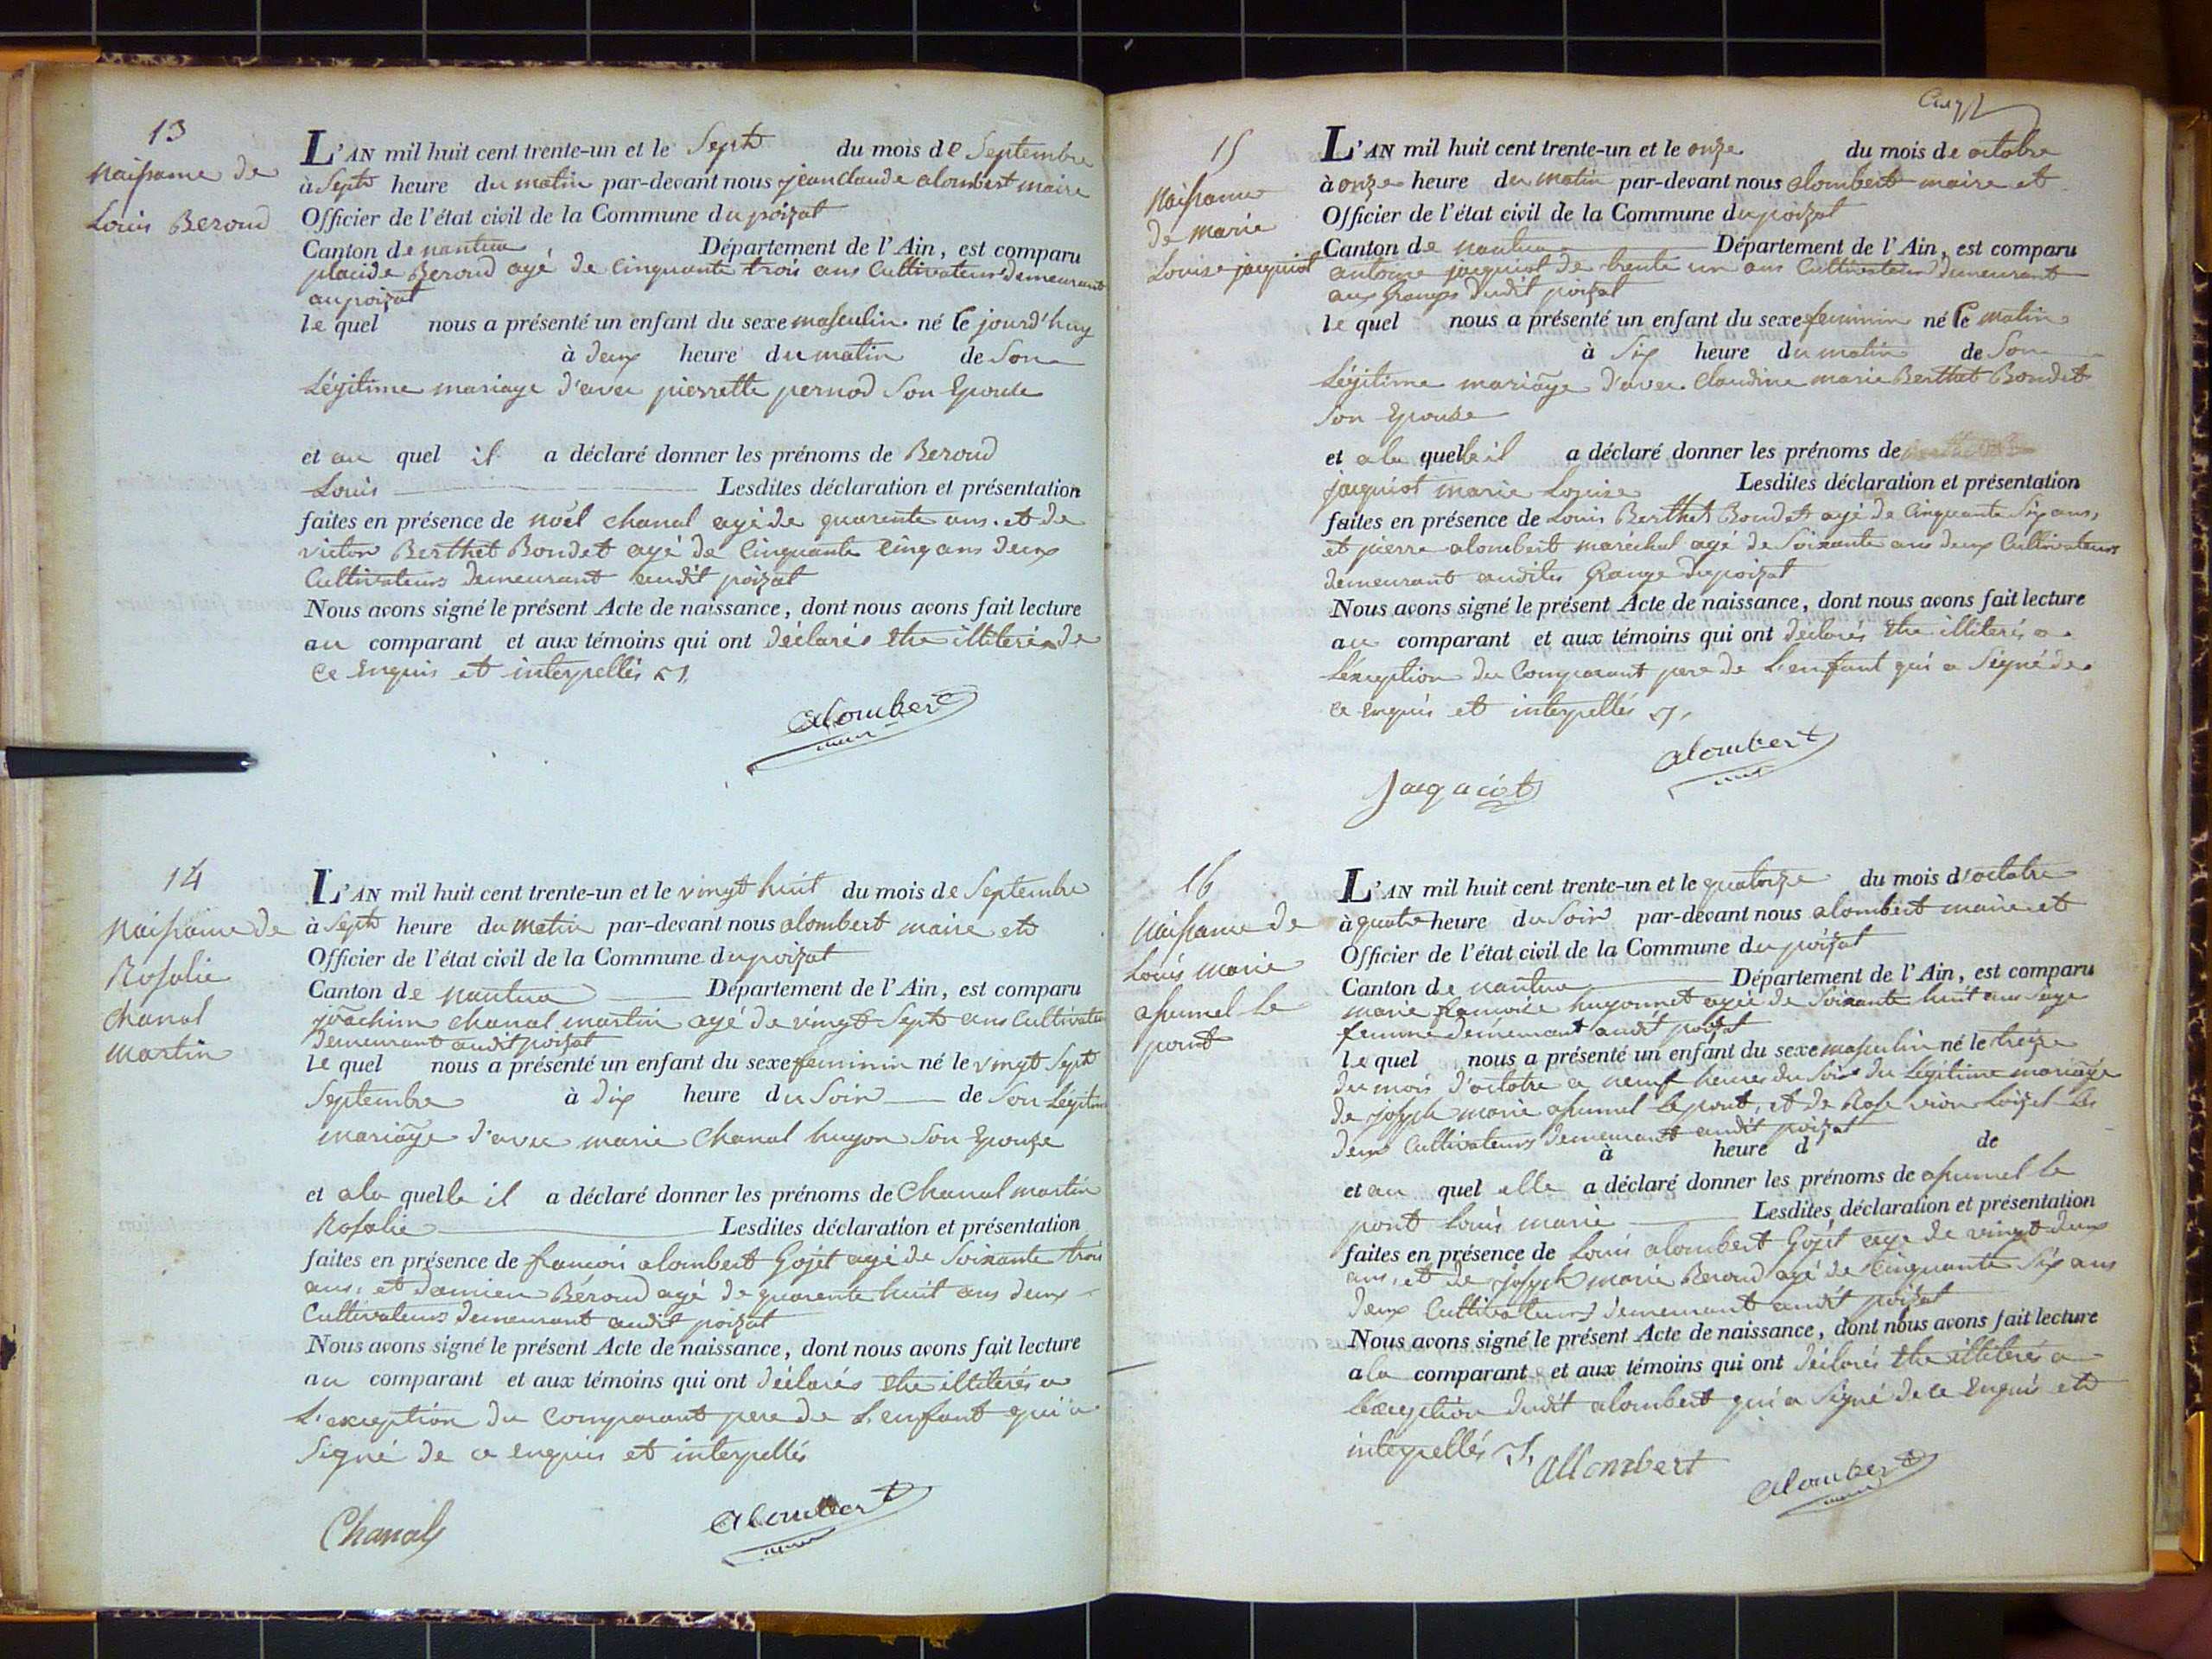 13
Naissance de
Louis Beroud
L'AN mil huit cent trente-un et le Sept du mois de Septembre
à Sept heure du matin par-devant nous jean claude alombert maire
Officier de l'état civil de la Commune du poizat
Canton de nantua Département de l'Ain, est comparu
placide Beroud agé de Cinquante trois ans Cultivateur demeurant
au poizat
le quel nous a présenté un enfant du sexe masculin né le jourd'huy
à deux heure du matin de Son
Légitime mariage d'avec pierrette pernod Son Epouse
et au quel il a déclaré donner les prénoms de Beroud
Louis Lesdites déclaration et présentation
faites en présence de noël chanal agé de quarente ans. et de
victor Berthet Bondet agé de Cinquante Cinq ans deux
Cultivateurs demeurant audit poizat
Nous avons signé le présent Acte de naissance, dont nous avons fait lecture
au comparant et aux témoins qui ont déclarés etre illiterés de
ce enquis et interpellés
alombert
14
Naissance de
Rosalie
chanal
martin
L'AN mil huit cent trente-un et le vingt huit du mois de Septembre
à Sept heure du matin par-devant nous alombert maire et
Officier de l'état civil de la Commune du poizat
Canton de nantua Département de l'Ain, est comparu
joachim chanal martin agé de vingt Sept ans Cultivateur
demeurant audit poizat
le quel nous a présenté un enfant du sexe feminin né le vingt Sept
Septembre à dix heure du Soir de Son Légitime
mariage d'avec marie chanal hugon Son Epouze
et a la quelle il a déclaré donner les prénoms de Chanal martin
Rosalie Lesdites déclaration et présentation
faites en présence de francois alombert Gojet agé de Soixante trois
ans, et damien Béroud agé de quarente huit ans deux
Cultivateurs demeurant audit poizat
Nous avons signé le présent Acte de naissance, dont nous avons fait lecture
au comparant et aux témoins qui ont déclarés etre illiterés a
L'exception du comparant pere de L'enfant qui a
Signé de ce enquis et interpellés
Chanal
alombert
15
Naissance
de marie
Louise jacquiot
L'AN mil huit cent trente-un et le onze du mois de octobre
à onze heure du matin par-devant nous alombert maire et
Officier de l'état civil de la Commune du poizat
Canton de nantua Département de l'Ain, est comparu
antoine jacquiot de trente un ans Cultivateur demeurant
aux Granges dudit poizat
le quel nous a présenté un enfant du sexe feminin né le matin
à Six heure du matin de Son
Légitime mariage d'avec Claudine marie Berthet Bondet
Son Epouse
et a la quelle il a déclaré donner les prénoms de
jacquiot marie Louise Lesdites déclaration et présentation
faites en présence de Louis Berthet Bondet agé de Cinquante Six ans,
et pierre alombert maréchal agé de Soixante ans deux Cultivateurs
demeurant audites Grange du poizat
Nous avons signé le présent Acte de naissance, dont nous avons fait lecture
au comparant et aux témoins qui ont declarés etre illiterés a
L'exception du Comparant pere de L'enfant qui a Signé de
ce enquis et interpellés
alombert
Jacquiot
16
Naissance de
Louis marie
apurnel Le
pont
L'AN mil huit cent trente-un et le quatorze du mois d'octobre
à quatre heure du Soir par-devant nous alombert maire et
Officier de l'état civil de la Commune du poizat
Canton de nantua Département de l'Ain, est comparu
marie francoise hugonnet agée de Soixante huit ans Sage
femme demeurant audit poizat
le quel nous a présenté un enfant du sexe masculin né le treize
du mois d'octobre a neuf heures du Soir du Légitime mariage
de joseph marie apurnel Le pont, et de Rose vion Loizel Les
deux Cultivateurs demeurant audit poizat
à heure d de
et au quel elle a déclaré donner les prénoms de apurnel Le
pont Louis marie Lesdites déclaration et présentation
faites en présence de Louis alombert Gojet agé de vingt deux
ans, et de joseph marie Beroud agé de Cinquante Six ans
deux Cultivateurs demeurant audit poizat
Nous avons signé le présent Acte de naissance, dont nous avons fait lecture
a la comparant et aux témoins qui ont déclarés etre illiterés a
L'exception dudit alombert qui a Signé de ce Enquis et
interpellés
allombert
alombert